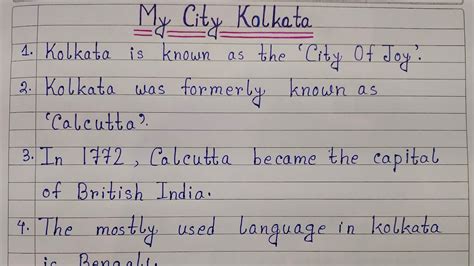 My City Kolkata
1. Kolkata is known as the 'City Of Joy'.
2. Kolkata was formerly known as
'Calcutta'.
3. In 1772, Calcutta became the capital
of British India.
4. The mostly used language in kolkata
is Bengali.